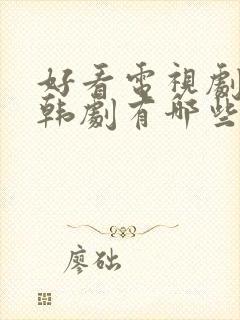 好看電視劇
韩劇有哪些
廖础